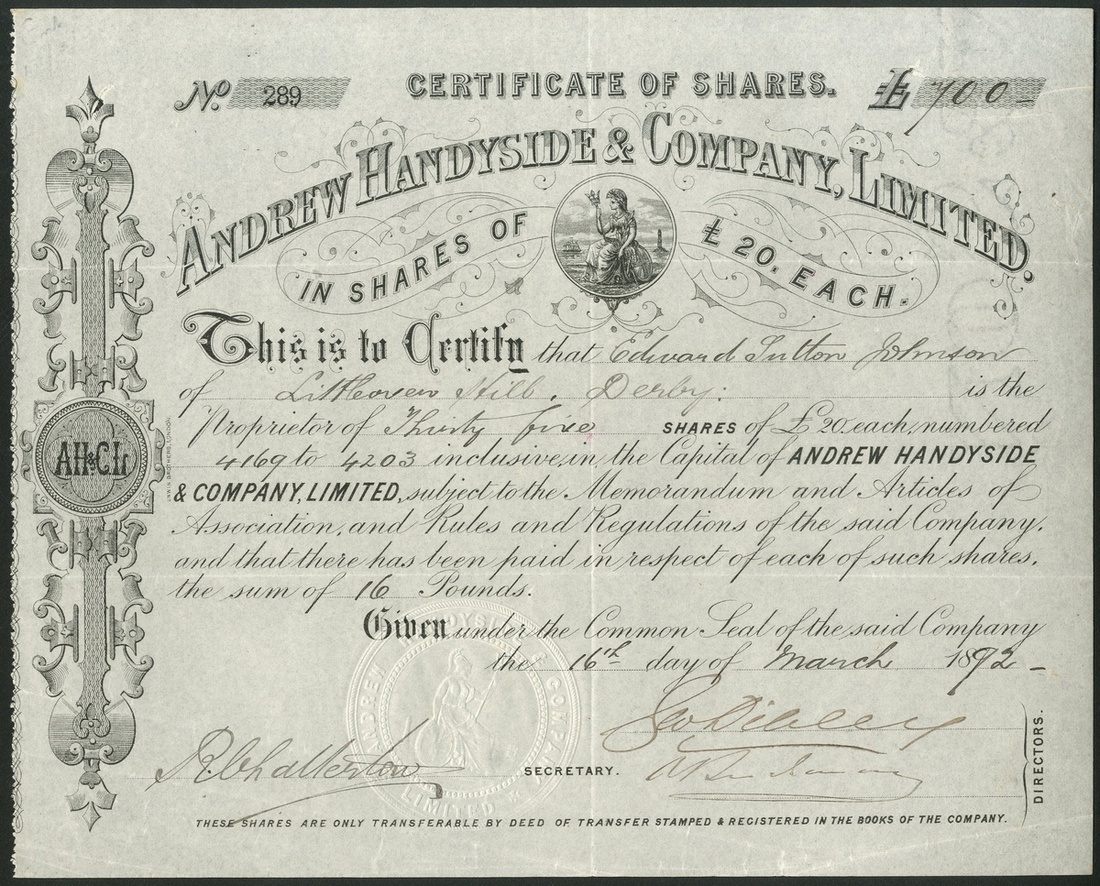 No. 289 CERTIFICATE OF SHARES. £700-
ANDREW HANDYSIDE & COMPANY, LIMITED.
IN SHARES OF £20. EACH.
This is to Certify that Edward Sutton Johnson
of Littleover Hill, Derby: is the
Proprietor of Thirty five SHARES of £20 each, numbered
4169 to 4203 inclusive, in the Capital of ANDREW HANDYSIDE
& COMPANY, LIMITED, subject to the Memorandum and Articles of
Association, and Rules and Regulations of the said Company,
and that there has been paid in respect of each of such shares,
the sum of 16 Pounds.
Given under the Common Seal of the said Company
the 16th day of March 1892-
R. Chatterton SECRETARY.
DIRECTORS.
THESE SHARES ARE ONLY TRANSFERABLE BY DEED OF TRANSFER STAMPED & REGISTERED IN THE BOOKS OF THE COMPANY.
AH&C Ld
ANDREW HANDYSIDE & COMPANY LIMITED